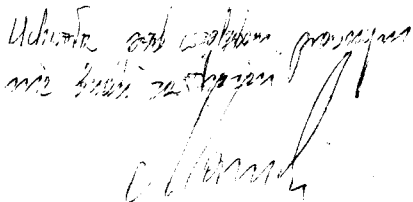 Uchwała pod względem prawnym
nie budzi zastrzeżeń